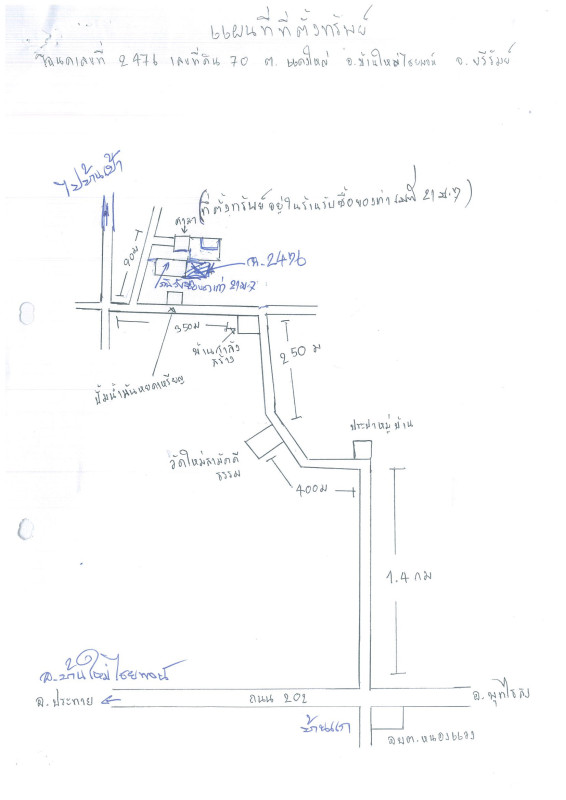 แผนที่ที่ตั้งทรัพย์
โฉนดเลขที่ 2476 เลขที่ดิน 70 ต. แดงใหญ่ อ.บ้านใหม่ไชยพจน์ จ. บุรีรัมย์
ไปบ้านเป้า
(ที่ตั้งทรัพย์อยู่ในร้านรับซื้อของเก่า 21 ม.7)
ศาลา
90 ม
ฉ.2476
350 ม
บ้านกำลัง
สร้าง
250 ม
ปั้มน้ำมันหยอดเหรียญ
ประปาหมู่บ้าน
วัดใหม่สามัคคี
ธรรม
400 ม
1.4 กม
อ.บ้านใหม่ไชยพจน์
อ.ประทาย
ถนน 202
อ.พุทไธสง
อบต.หนองแวง